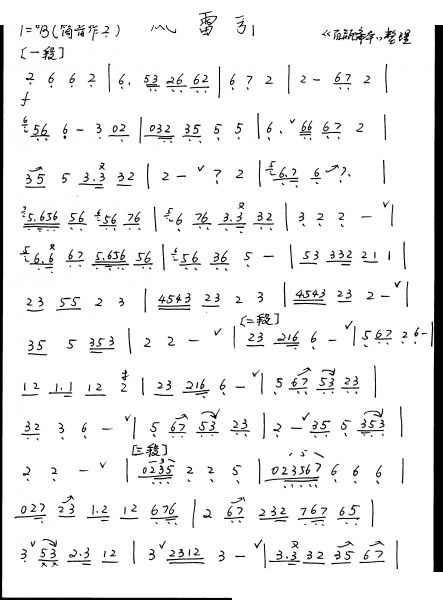 1=ᵇB(筒音作2) 风雷引 《百瓶斋主》整理
[一段]
2 6 6 2 | 6. 53 26 62 | 6 7 2 | 2 - 67 2 |
f
6 56 6 - 3 02 | 032 35 5 5 | 6. ˇ 66 67 2 |
35 5 3.3 32 | 2 - ˇ 7 2 | 5 6.7 6 7. |
7 5.656 56 6 56 76 | 5 6 76 3.3 32 | 3 2 2 - ˇ |
5 6.6 67 5.656 56 | 6 56 36 5 - | 53 332 21 1 |
23 55 2 3 | 4543 23 2 3 | 4543 23 2 - ˇ |
[二段]
35 5 353 | 2 2 - ˇ | 23 216 6 - ˇ | 567 26- |
12 1.1 12 2 | 23 216 6 - ˇ | 5 67 53 23 |
32 3 6 - ˇ | 5 67 53 23 | 2 - ˇ 35 5 353 |
[三段]
2 2 - ˇ | 0235 2 2 5 | 023567 6 6 6 |
027 23 1.2 12 676 | 2 67 232 767 65 |
3 ˇ 53 2.3 12 | 3 ˇ 2312 3 - ˇ | 3.3 32 35 67 |